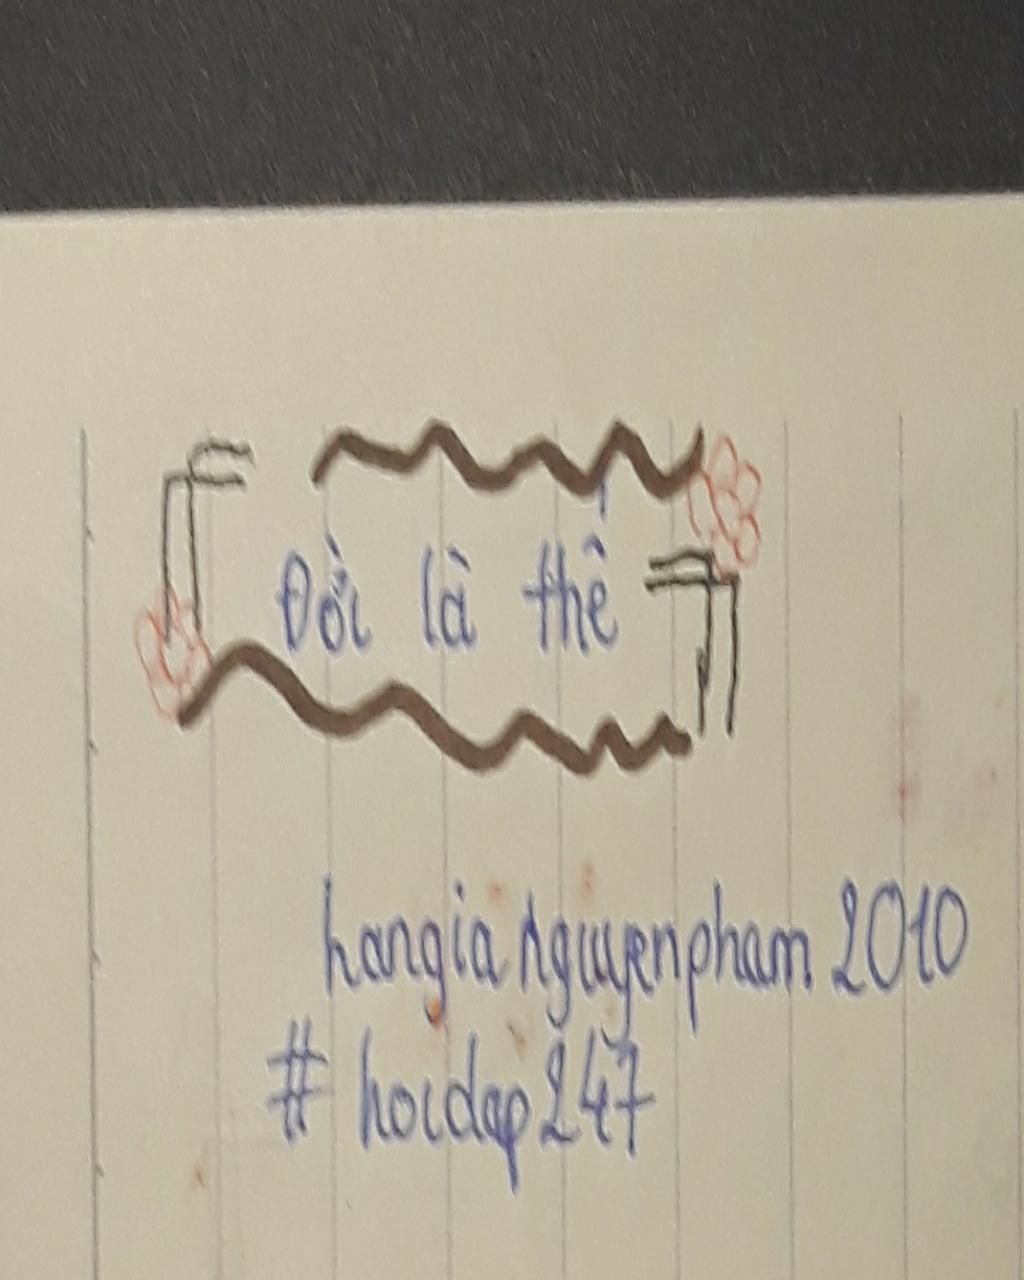 Đời là thế
hangianguyenpham2010
# hoidap247